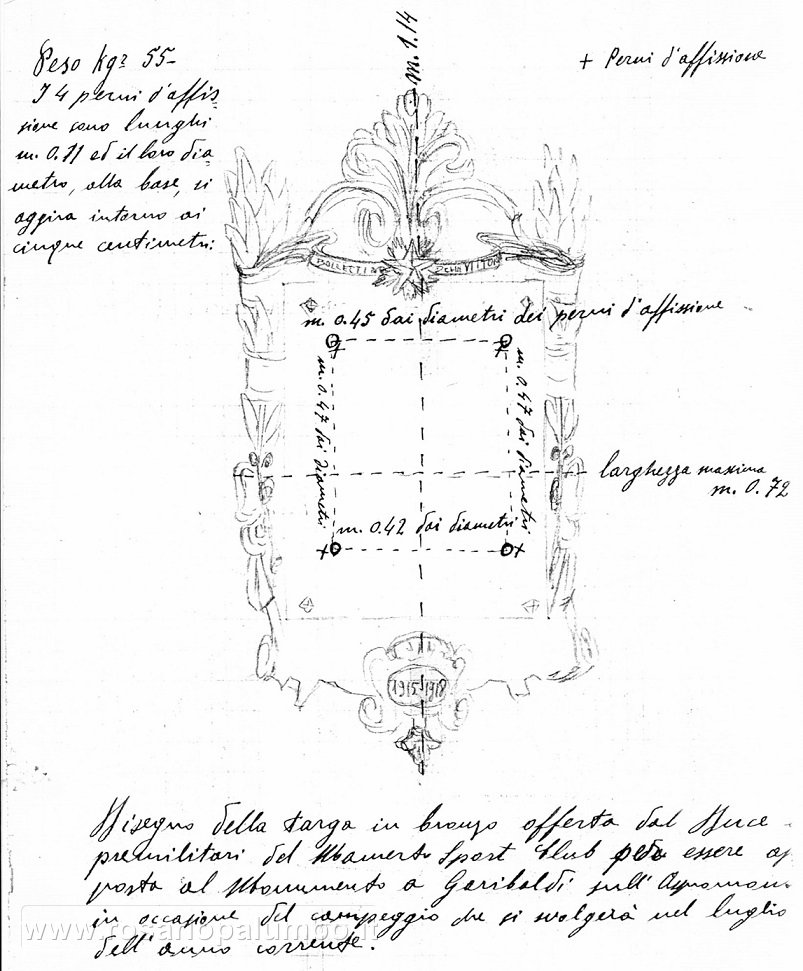 m. 1.14
Peso kg? 55-
I 4 perni d'affis-
sione sono lunghi
m. 0.11 ed il loro dia
metro, alla base, si
aggira intorno ai
cinque centimetri.
+ Perni d'affissione
BOLLETTINO DELLA VITTOR
m. 0.45 dai diametri dei perni d'affissione
m. 0.47 dai diametri
m. 0.47 dai diametri
larghezza massima
m. 0.72
m. 0.42 dai diametri
1915 1918
Disegno della targa in bronzo offerta dal Duce -
premilitari del Sport Club per essere ap
posta al Monumento a Garibaldi sull'Aspromon
in occasione del campeggio che si svolgerà nel luglio
dell'anno corrente.
www.rosariopalumbo.it